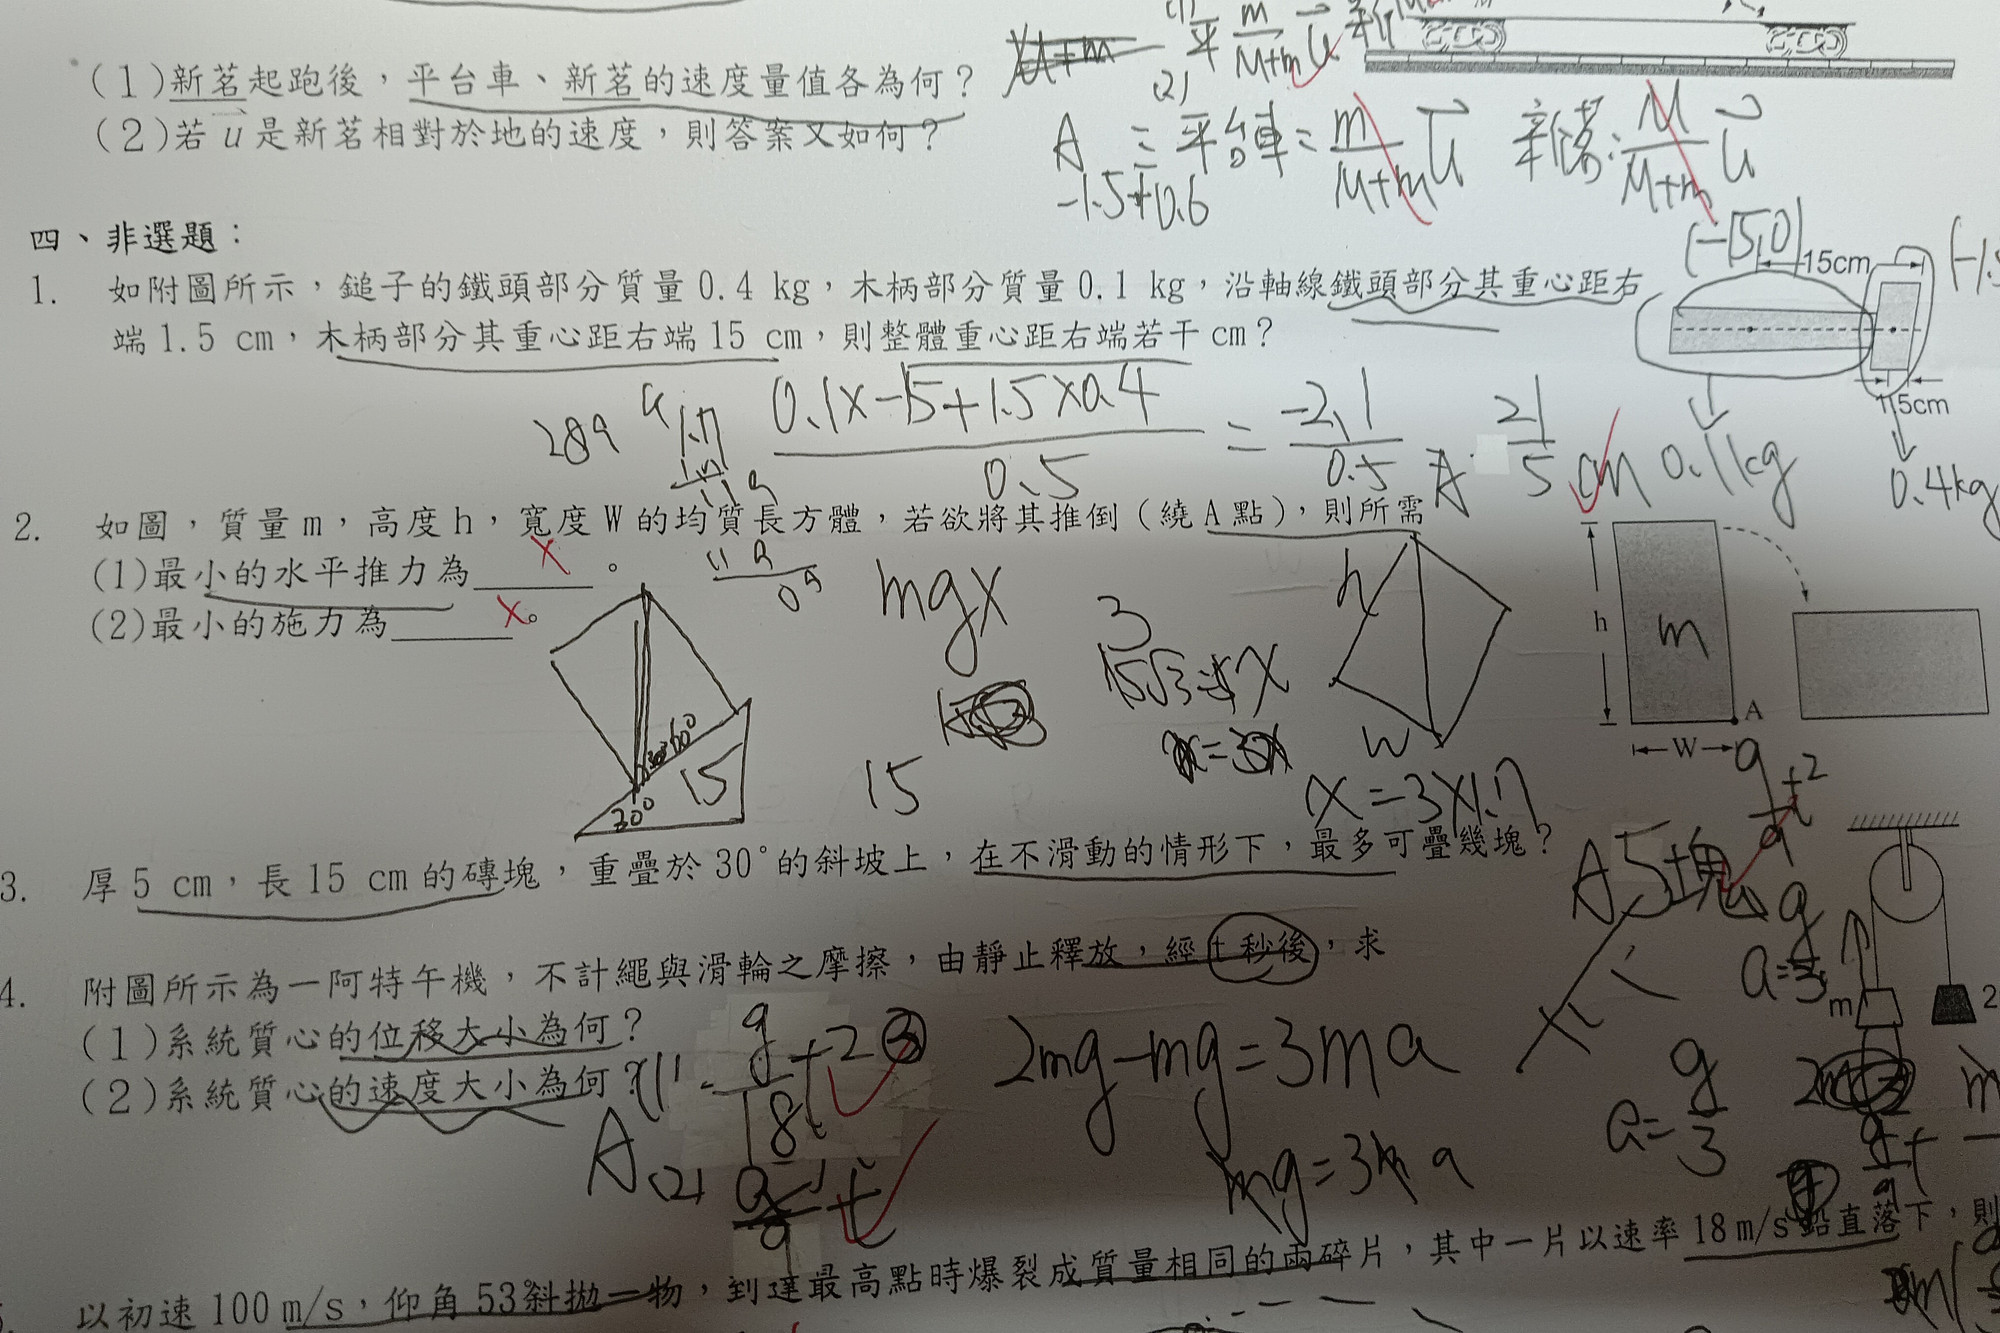 (1)新茗起跑後，平台車、新茗的速度量值各為何？
(2)若 u 是新茗相對於地的速度，則答案又如何？
(1) 平 m/M+m u
(2)
A 平台車=m/M+m u 新茗:M/M+m u
-1.5+0.6
四、非選題：
1. 如附圖所示，鎚子的鐵頭部分質量0.4 kg，木柄部分質量0.1 kg，沿軸線鐵頭部分其重心距右
端1.5 cm，木柄部分其重心距右端15 cm，則整體重心距右端若干cm？
(-15,0)
15cm
1.5cm
0.1kg
0.4kg
289
0.1x-15+1.5x0.4/0.5 = -2.1/0.5 A 21/5 cm
2. 如圖，質量m，高度h，寬度W的均質長方體，若欲將其推倒（繞A點），則所需
(1)最小的水平推力為______。
(2)最小的施力為______。
mgx
h
w
h
m
A
W
30°
60°
30°
15
15
x=3x1.7
3. 厚5 cm，長15 cm的磚塊，重疊於30°的斜坡上，在不滑動的情形下，最多可疊幾塊？
A 5塊
4. 附圖所示為一阿特午機，不計繩與滑輪之摩擦，由靜止釋放，經t秒後，求
(1)系統質心的位移大小為何？
(2)系統質心的速度大小為何？
A (1) g/18 t²
(2) g/9 t
2mg-mg=3ma
mg=3ma
a=g/3
a=g/3
m
2
以初速100 m/s，仰角53°斜拋一物，到達最高點時爆裂成質量相同的兩碎片，其中一片以速率18 m/s鉛直落下，則